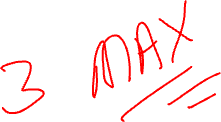 3 MAX